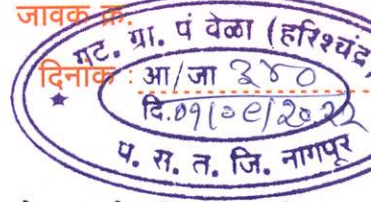 जावक क्र.
गट. ग्रा. पं वेळा (हरिश्चंद्र)
दिनांक : आ/जा ३४०
दि.०१/०९/२०२२
प. स. त. जि. नागपूर